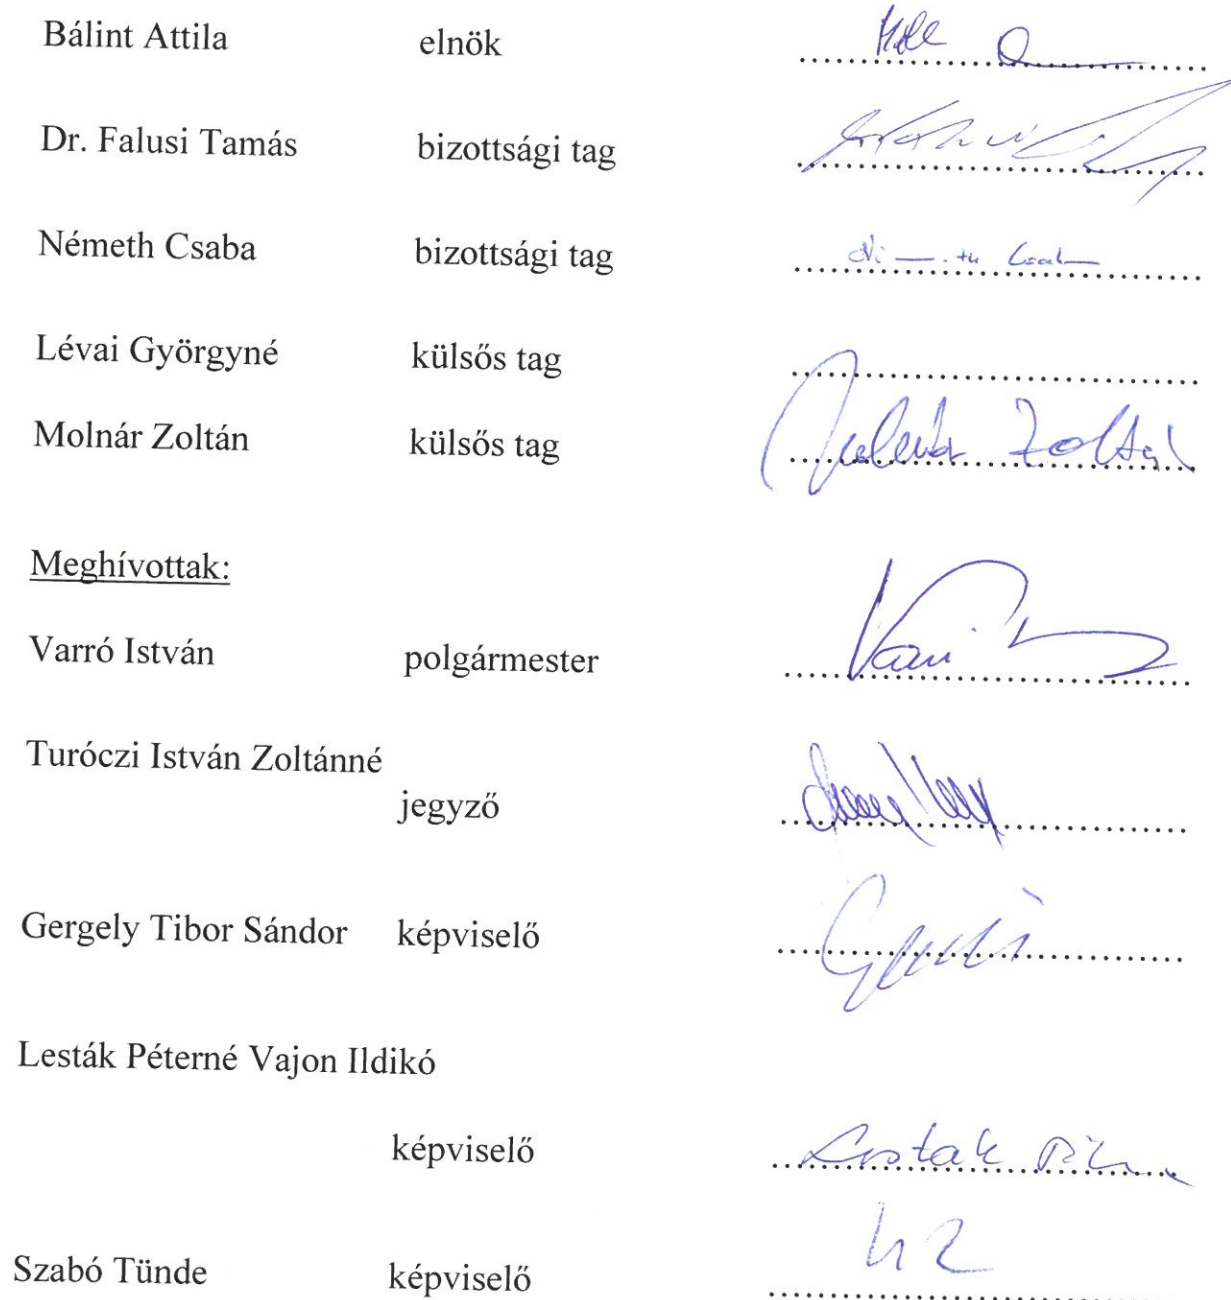 Bálint Attila elnök
Dr. Falusi Tamás bizottsági tag
Németh Csaba bizottsági tag
Lévai Györgyné külsős tag
Molnár Zoltán külsős tag Zoltán
Meghívottak:
Varró István polgármester
Turóczi István Zoltánné
jegyző
Gergely Tibor Sándor képviselő
Lesták Péterné Vajon Ildikó
képviselő Lesták
Szabó Tünde képviselő